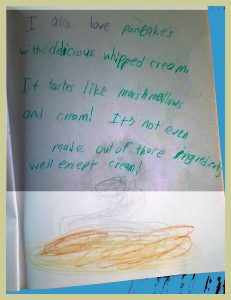 I also love pancakes
with ddilicious whipped cream.
It tastes like marshmallows
and cream! It's not even
made out of those ingredients
well except cream!